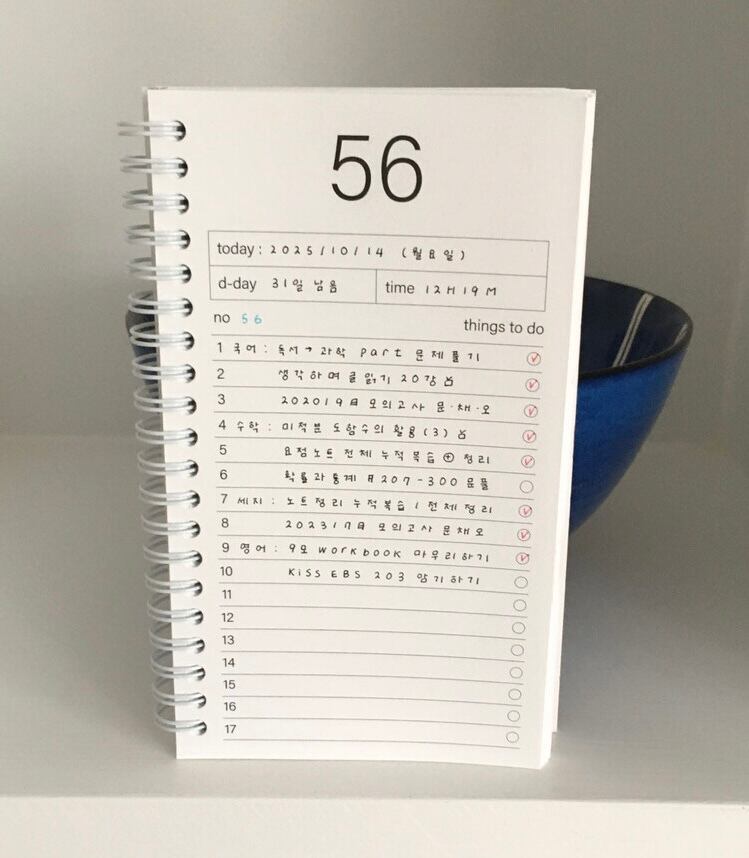 56
today : 2025/10/14 (월요일)
d-day 31일 남음 time 12H 19M
no 56 things to do
1 국어 : 독서 → 과학 part 문제풀기
2 생각하며 글 읽기 20강
3 202019 모의고사 문·채·오
4 수학 : 미적분 도함수의 활용 (3)
5 요점노트 전체 누적복습 ⊕ 정리
6 확률과통계 207-300 문풀
7 세지 : 노트정리 누적복습 / 전체 정리
8 202317 모의고사 문채오
9 영어 : 9모 workbook 마무리하기
10 KiSS EBS 203 암기하기
11
12
13
14
15
16
17